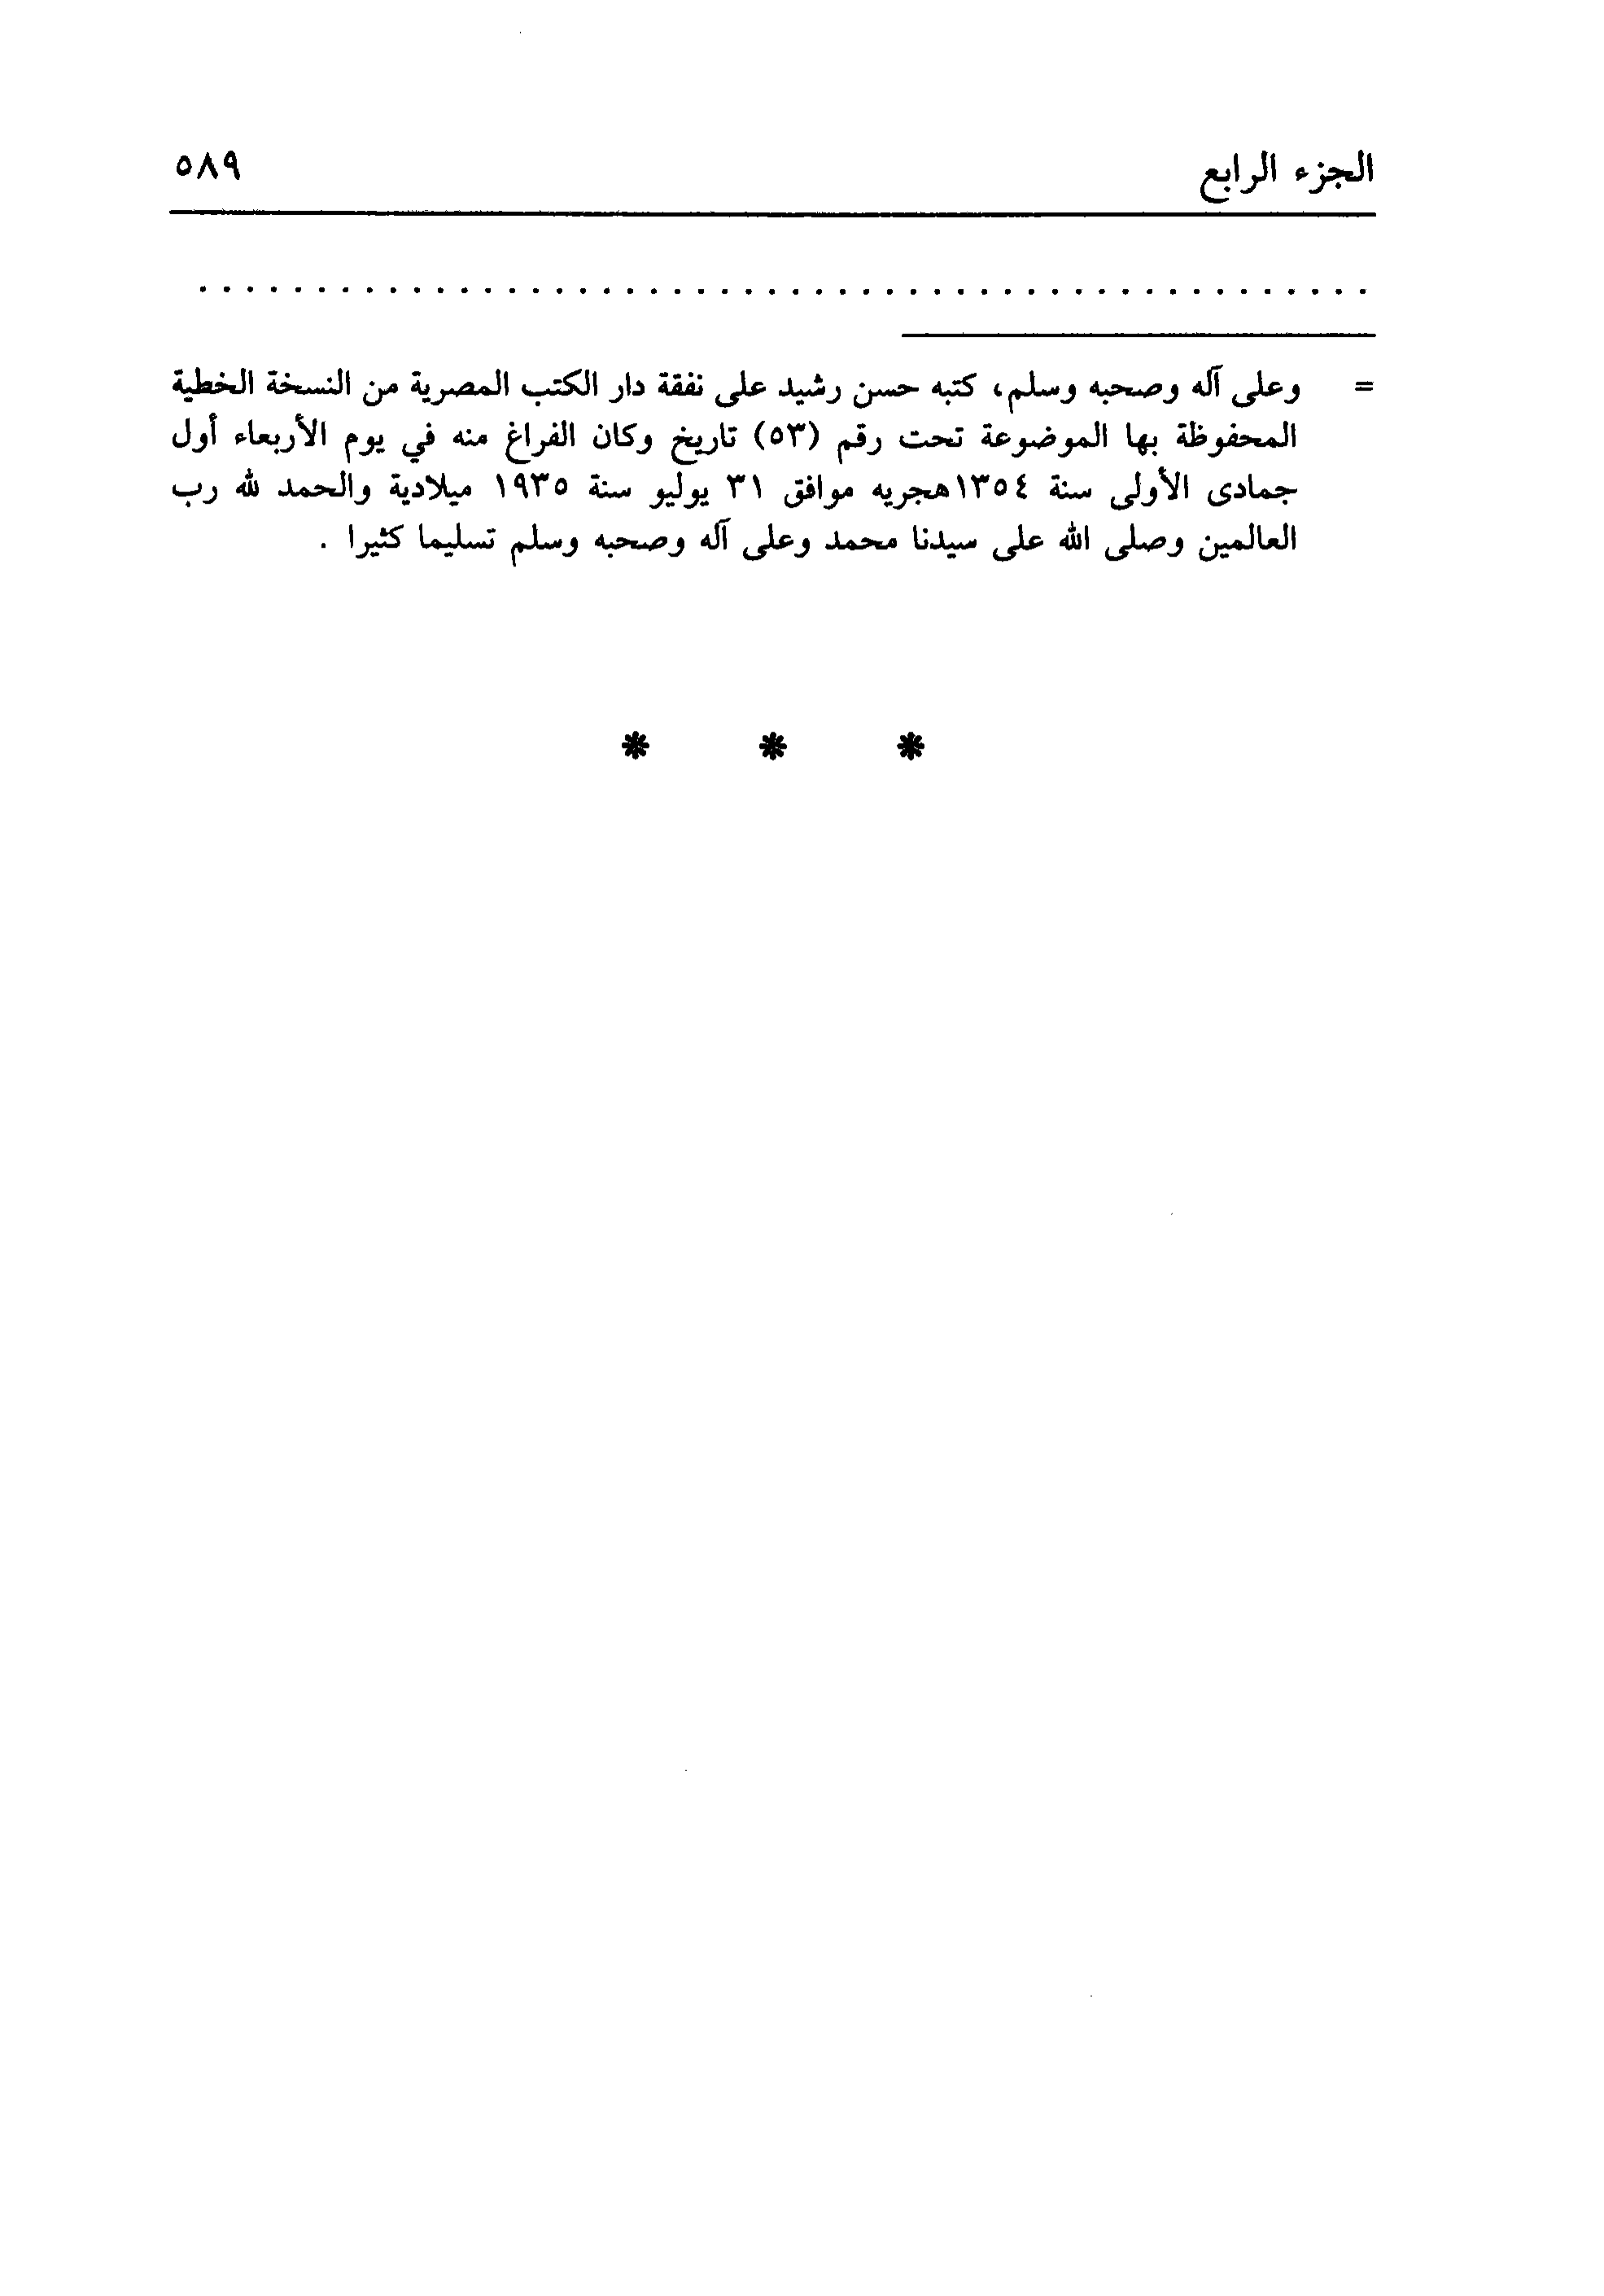 الجزء الرابع ٥٨٩
. . . . . . . . . . . . . . . . . . . . . . . . . . . . . . . . . . . . . . . . . . . . . . . . . .
= وعلى آله وصحبه وسلم، كتبه حسن رشيد على نفقة دار الكتب المصرية من النسخة الخطية
المحفوظة بها الموضوعة تحت رقم (٥٣) تاريخ وكان الفراغ منه في يوم الأربعاء أول
جمادى الأولى سنة ١٣٥٤هجريه موافق ٣١ يوليو سنة ١٩٣٥ ميلادية والحمد لله رب
العالمين وصلى الله على سيدنا محمد وعلى آله وصحبه وسلم تسليما كثيرا .
* * *